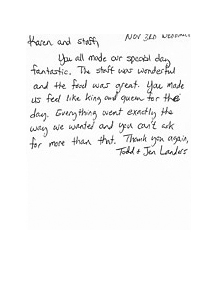 NOV 3RD WEDDING
Karen and staff,
You all made our special day
fantastic. The staff was wonderful
and the food was great. You made
us feel like king and queen for the
day. Everything went exactly the
way we wanted and you can't ask
for more than that. Thank you again,
Todd + Jen Landers